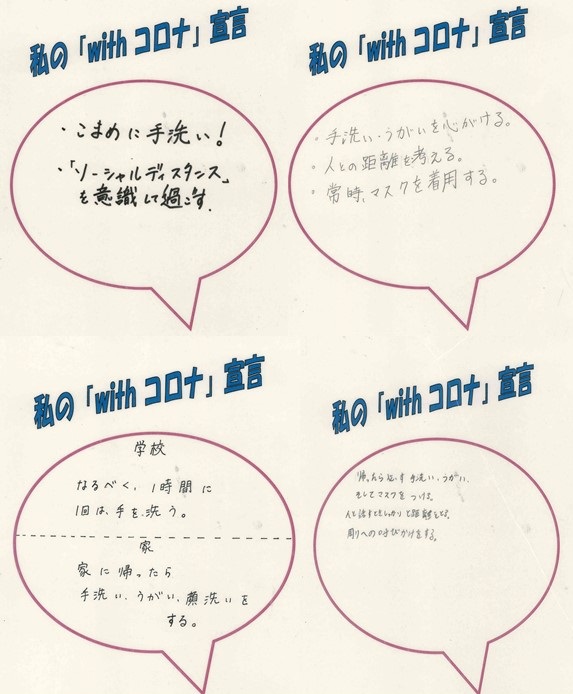 私の「with コロナ」宣言
・こまめに手洗い!
・「ソーシャルディスタンス」
を意識して過ごす.
私の「with コロナ」宣言
・手洗い・うがいを心がける。
・人との距離を考える。
・常時、マスクを着用する。
私の「with コロナ」宣言
学校
なるべく、1時間に
1回は、手を洗う。
家
家に帰ったら
手洗い、うがい、顔洗いを
する。
私の「with コロナ」宣言
帰ったら必ず手洗い・うがい、
そしてマスクをつける。
人と話すときしっかりと距離をとる。
周りへの呼びかけをする。